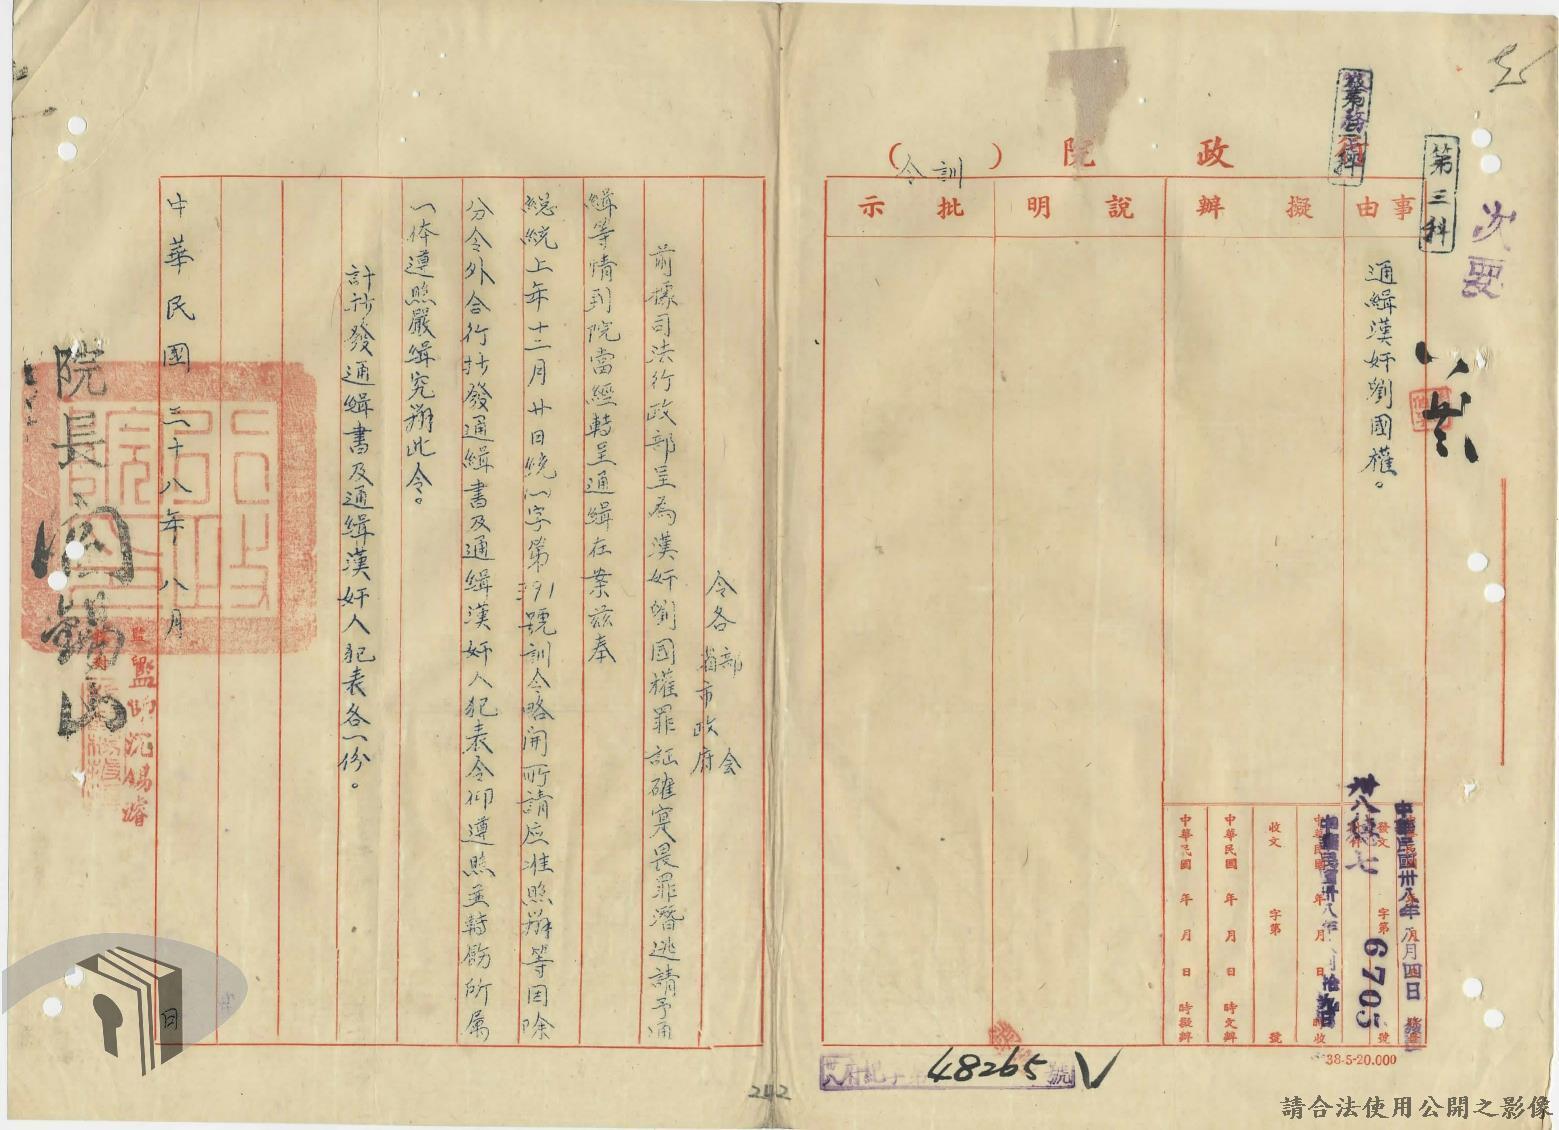 第三科
次要
行政院（訓令）
事由
擬辦
說明
批示
通緝漢奸劉國權。
中華民國卅八年八月四日
發文
字第
號
卅八穗七
6705
中華民國 年 月 日 時收
收文
字第
號
中華民國 年 月 日 時交辦
中華民國 年 月 日 時擬辦
38-5-20.000
48265
號
242
令各部会
省市政府
前據司法行政部呈為漢奸劉國權罪証確寔畏罪潛逃請予通
緝等情到院當經轉呈通緝在案兹奉
總統上年十二月廿日統(一)字第391號訓令略開所請应准照辦等因除
分令外合行抄發通緝書及通緝漢奸人犯表令仰遵照並轉飭所屬
一体遵照嚴緝究辦此令。
計抄發通緝書及通緝漢奸人犯表各一份。
中華民國三十八年八月
日
院長閻錫山
監印沈錫濬
請合法使用公開之影像